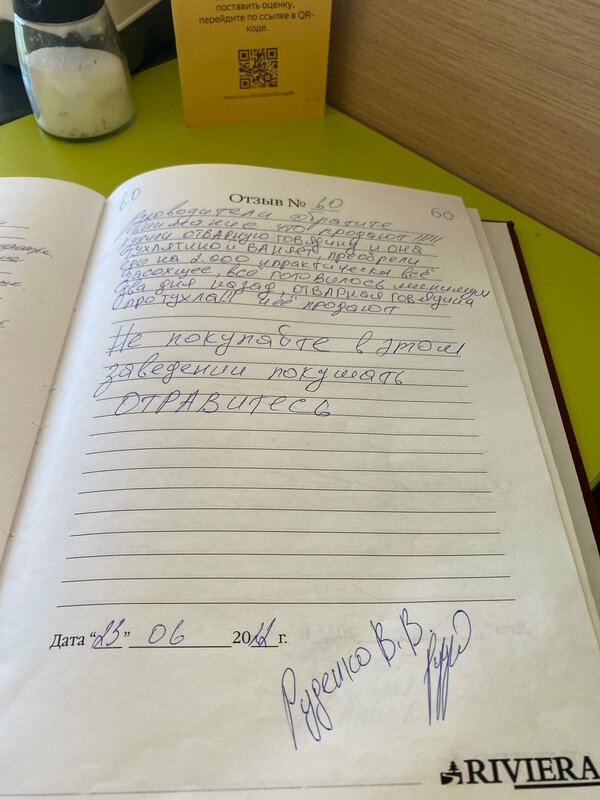 поставить оценку,
перейдите по ссылке в QR-
коде.
60
Отзыв № 60
60
Руководители обратите
внимание что продают !!!!
отварную говядину и она
тухлятино и воняет, преобрели
еды на 2.000 и практически всё
засохшее, всё готовилось минимум
два дня назад, отварная говядина
протухла!! и её продают
Не покупайте в этом
заведении покушать
ОТРАВИТЕСЬ
Дата “25” 06 2022 г.
Руденко В.В.
RIVIERA